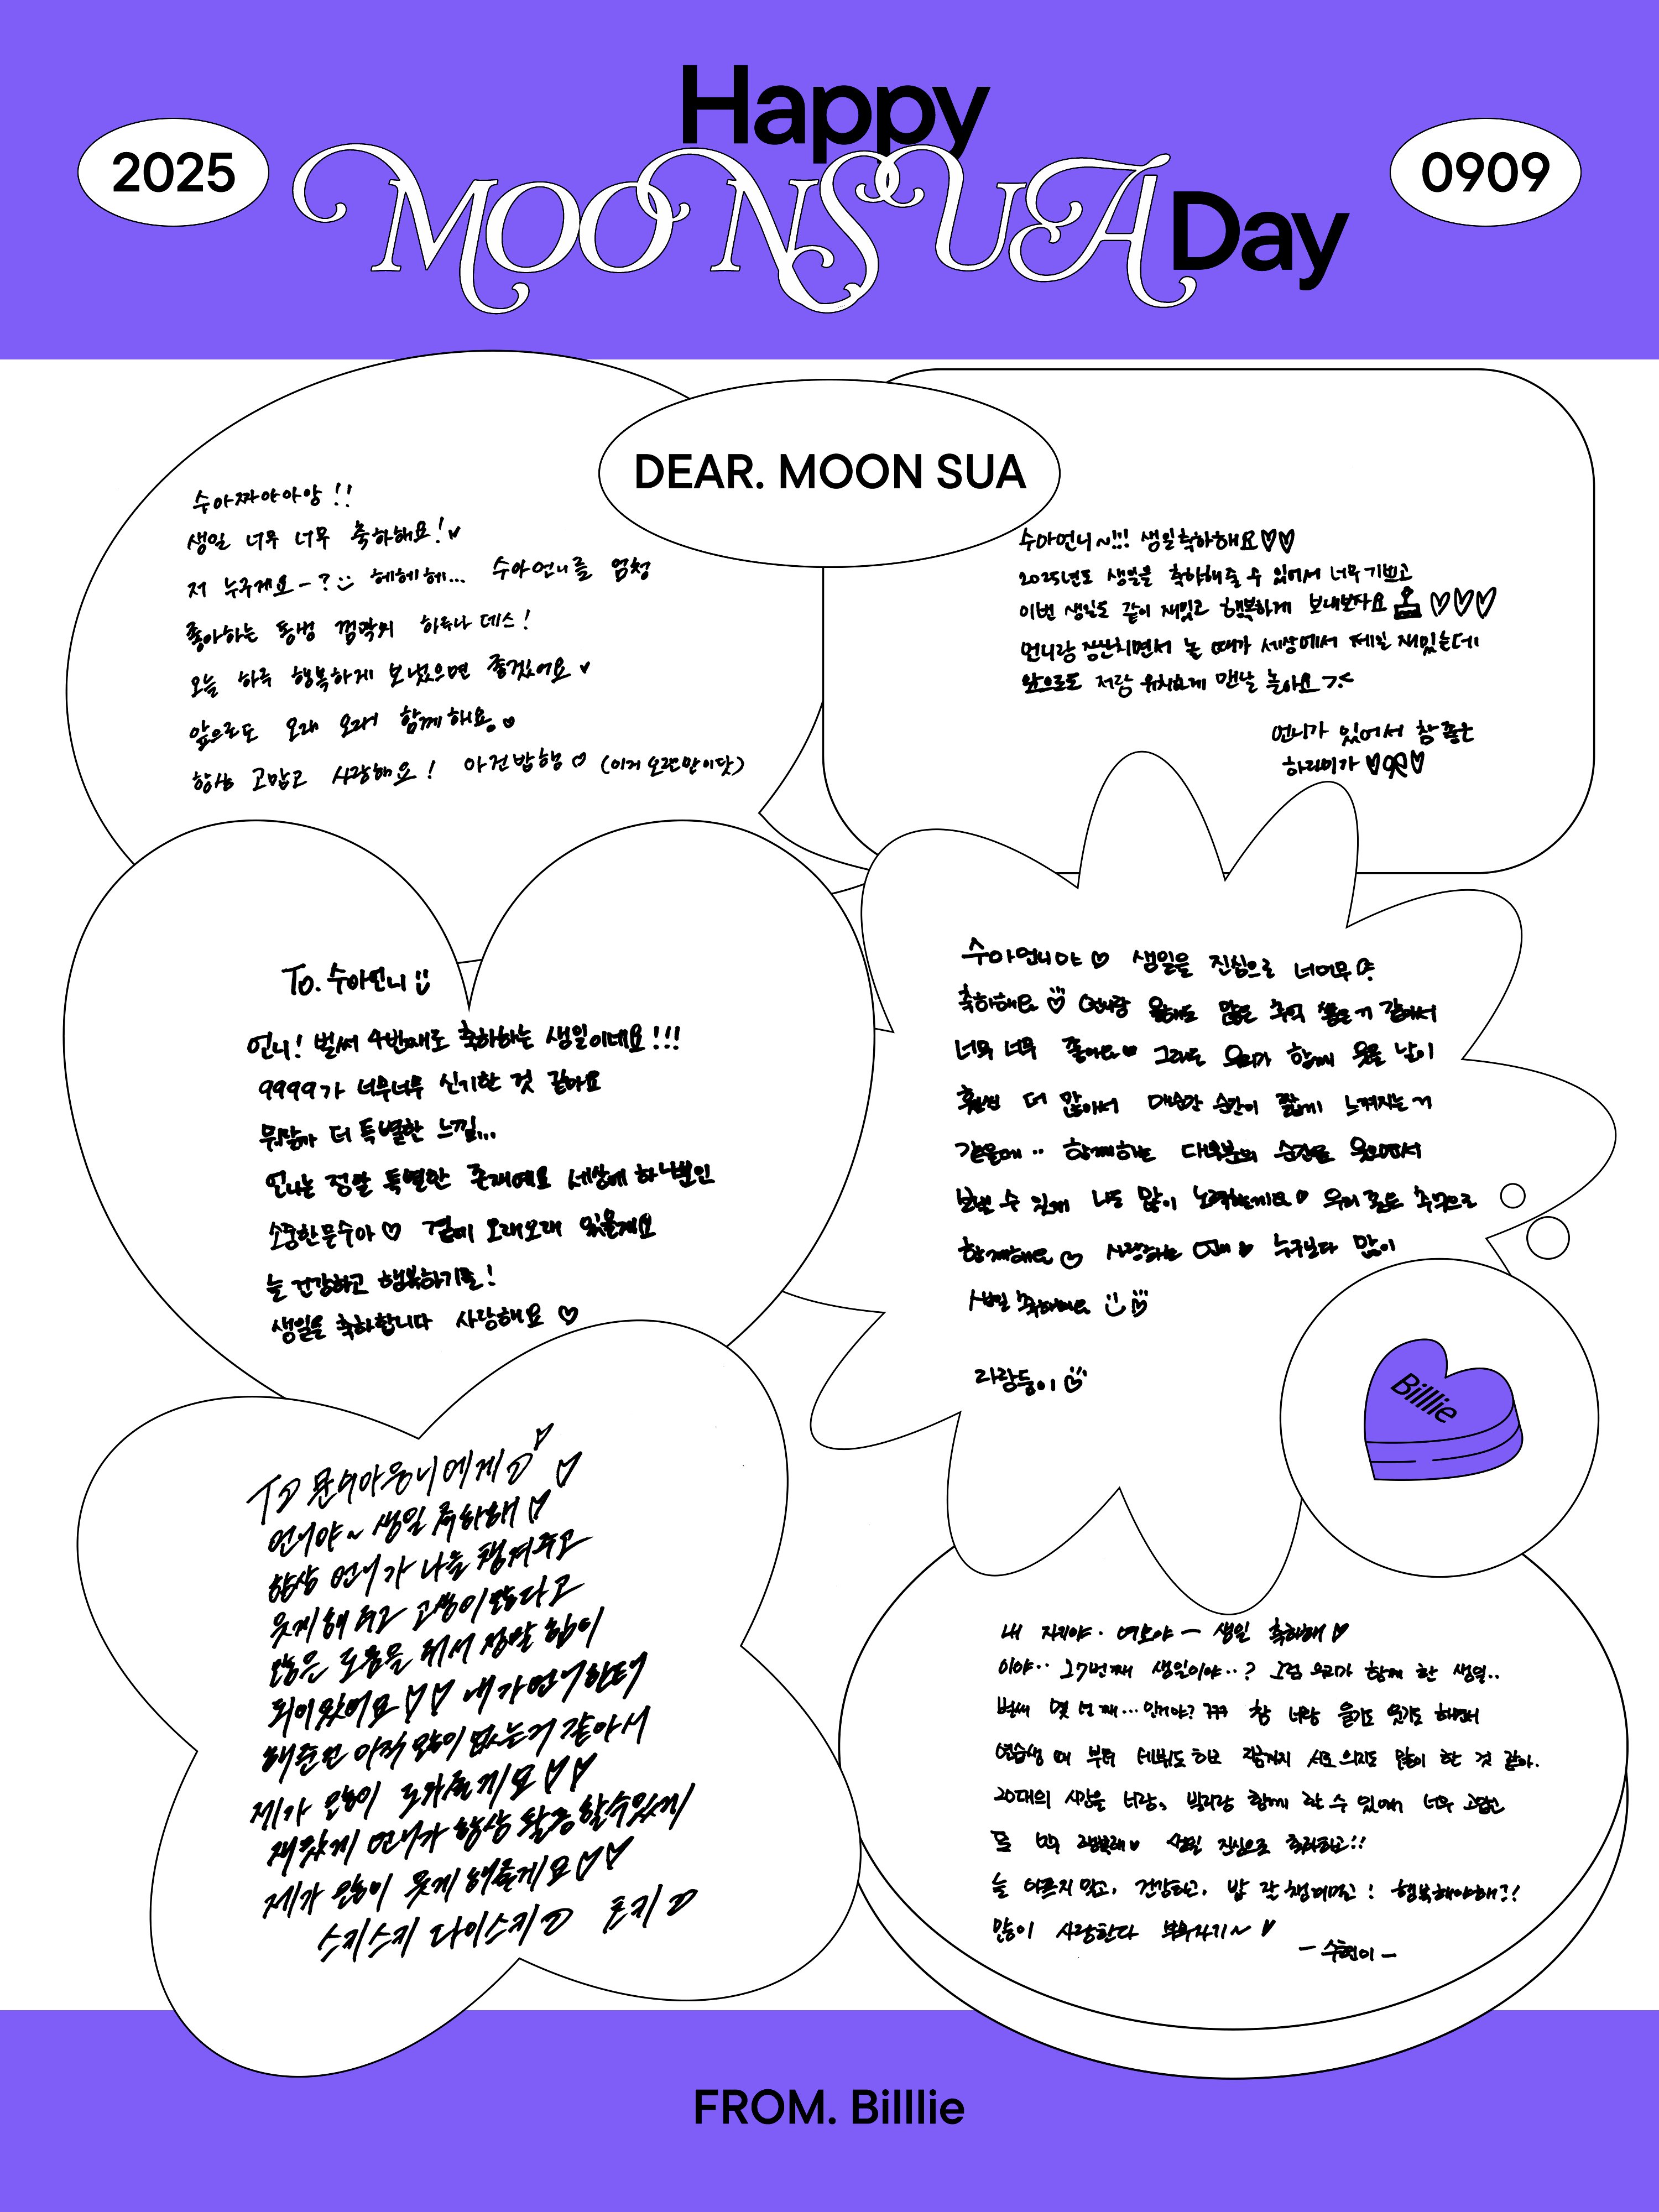 Happy
2025
MOONSUA Day
0909
DEAR. MOON SUA
수아짜아아앙!!
생일 너무 너무 축하해요!♥
저 누구게요-? 헤헤헤... 수아언니를 엄청
좋아하는 동생 껌딱지 하루나 데스!
오늘 하루 행복하게 보냈으면 좋겠어요♥
앞으로도 오래 오래 함께해요♡
항상 고맙고 사랑해요! 아건밥행♡ (이거 오랜만이닷)
수아언니~!!! 생일축하해요♡♡
2025년도 생일을 축하해줄 수 있어서 너무 기쁘고
이번 생일도 같이 재밌고 행복하게 보내보자요 ♡♡♡
언니랑 장난치면서 놀 때가 세상에서 제일 재밌는데
앞으로도 저랑 유치하게 맨날 놀아요 >.<
언니가 있어서 참 좋은
하리미가 ♡♡
To. 수아언니
언니! 벌써 4번째로 축하하는 생일이네요!!!
9999가 너무너무 신기한 것 같아요
뭐랄까 더 특별한 느낌...
언니는 정말 특별한 존재예요 세상에 하나뿐인
소중한문수아♡ 곁에 오래오래 있을게요
늘 건강하고 행복하기를!
생일을 축하합니다 사랑해요 ♡
수아언니야♡ 생일을 진심으로 너어무
축하해요 언니랑 올해도 많은 추억 쌓은거 같아서
너무 너무 좋아요♥ 그래도 우리가 함께 웃을 날이
훨씬 더 많아서 매순간 순간이 짧게 느껴지는거
같은데.. 함께하는 대부분의 순간을 웃으면서
보낼 수 있게 나도 많이 노력할게요♡ 우리
함께해요♡ 사랑하는 언니♥ 누구보다 많이
생일 축하해요
자랑둥이
To 문수아웅니에게♡
언니야~ 생일 축하해♡
항상 언니가 나를 챙겨주고
웃게해 주고 고생이많다고
많은 도움을 줘서 정말 힘이
되어왔어요♡♡ 내가언니한테
해준건 아직 많이 없는거 같아서
제가 많이 도와줄게요♡♡
재밌게 언니가 항상 활동할수있게
제가 많이 웃게 해줄게요♡♡
스키스키 다이스키♡ 츠키♡
내 자기야. 여보야- 생일 축하해♡
이야.. 27번째 생일이야..? 그럼 우리가 함께 한 생일..
벌써 몇 번째...인거야? ㅋㅋㅋ 참 너랑 울기도 웃기도 하면서
연습생 때 부터 데뷔도 하고 지금까지 서로 의지도 많이 한 것 같아.
20대의 시간을 너랑, 빌리랑 함께 할 수 있어서 너무 고맙고
또 너무 행복해♥ 생일 진심으로 축하하고!!
늘 아프지 말고, 건강하고, 밥 잘 챙겨먹고! 행복해야해?!
많이 사랑한다 자기~♥
- 수현이 -
Billlie
FROM. Billlie